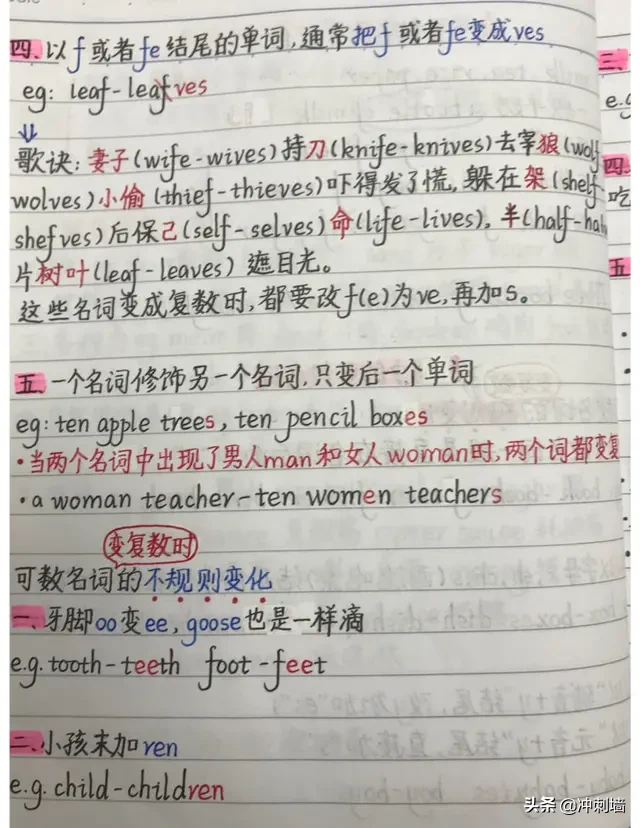 四.以f或者fe结尾的单词,通常把f或者fe变成ves
eg: leaf-leafves
歌诀:妻子(wife-wives)持刀(knife-knives)去宰狼(wolf
wolves)小偷(thief-thieves)吓得发了慌,躲在架(shelf-
shefves)后保己(self-selves)命(life-lives)。半(half-hal
片树叶(leaf-leaves)遮目光。
这些名词变成复数时,都要改f(e)为ve,再加s。
五.一个名词修饰另一个名词,只变后一个单词
eg:ten apple trees, ten pencil boxes
·当两个名词中出现了男人man和女人woman时,两个词都变复
·a woman teacher-ten women teachers
变复数时
可数名词的不规则变化
一、牙脚oo变ee,goose也是一样滴
e.g.tooth-teeth foot-feet
二.小孩末加ren
e.g.child-children
三.
e.g
四.
吃
五
头条@冲刺墙